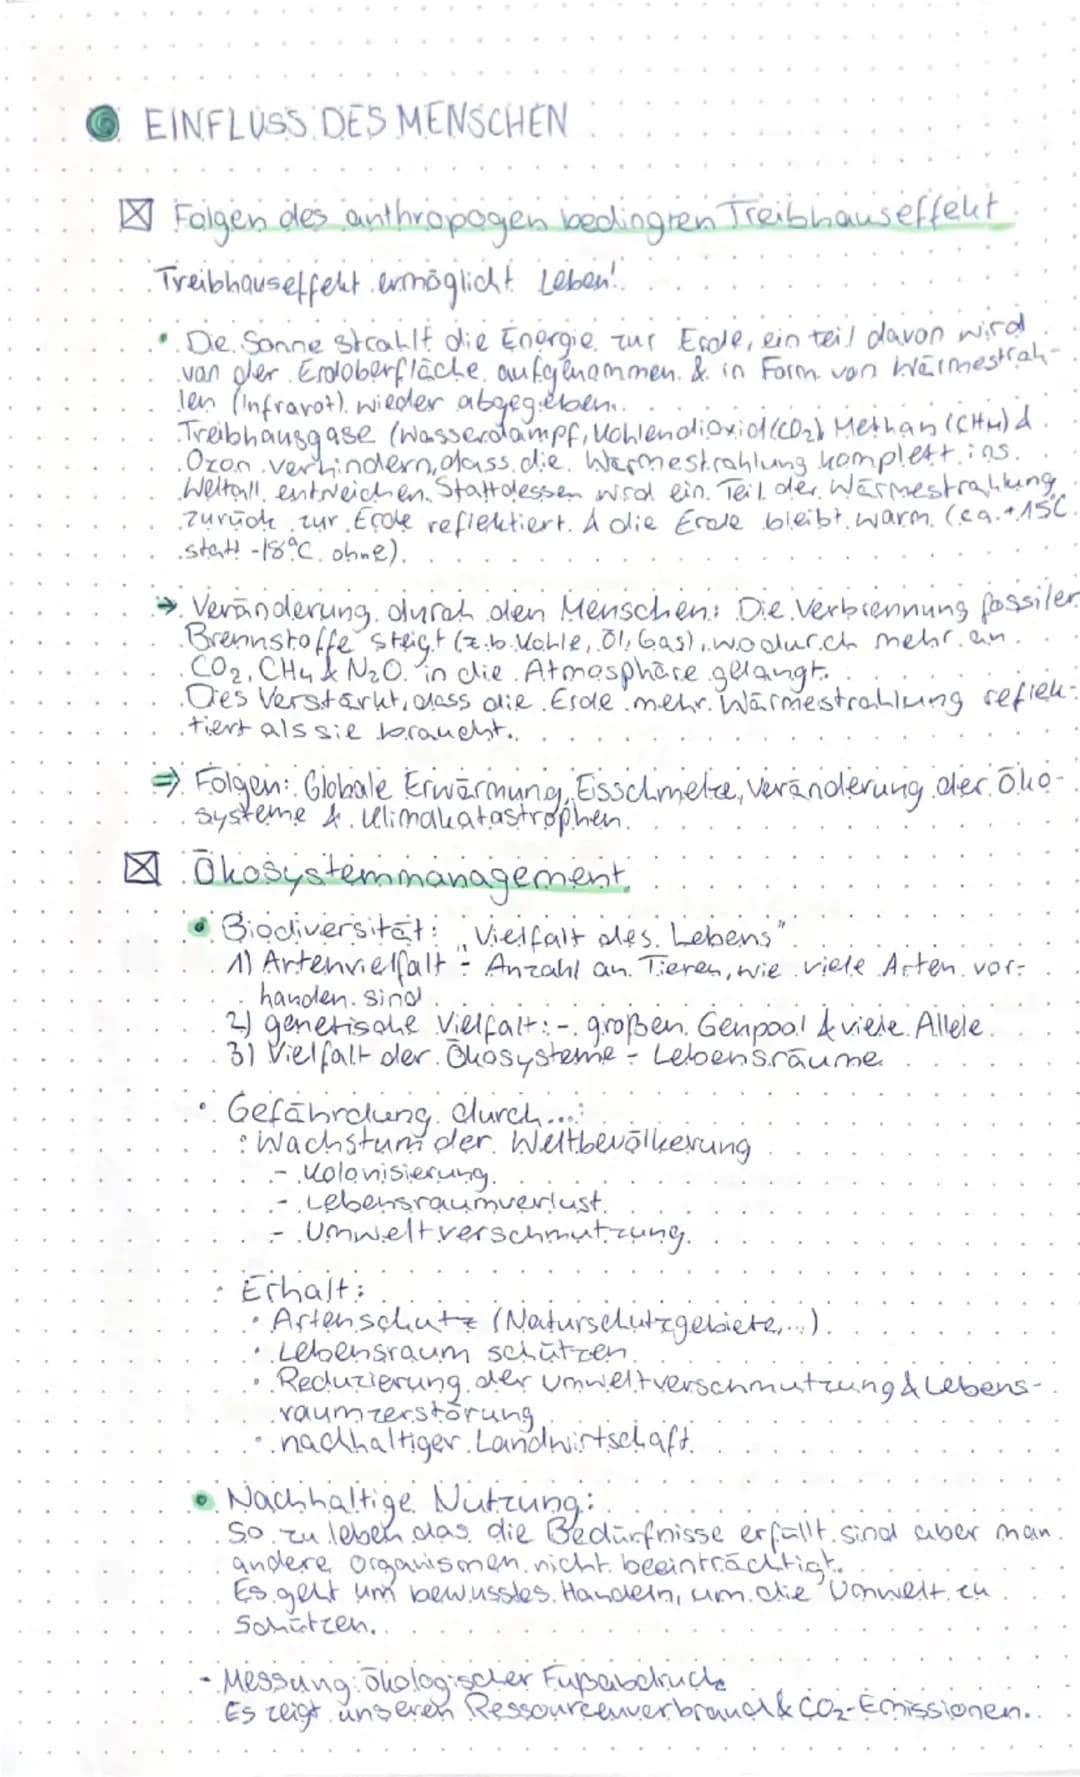 EINFLUSS DES MENSCHEN
Folgen des anthropogen bedingten Treibhauseffekt
Treibhauseffekt ermöglicht Leben!
Die Sonne strahlt die Energie zur Erde, ein teil davon wird
von der Erdoberfläche aufgenommen & in Form von Wärmestrah-
len (Infrarot) wieder abgegeben.
Treibhausgase (Wasserdampf, Kohlendioxid (CO2), Methan (CH4) &
Ozon verhindern, dass die Wärmestrahlung komplett ins
Weltall entweichen. Stattdessen wird ein Teil der Wärmestrahlung
zurück zur Erde reflektiert. & die Erde bleibt warm (ca. +15C
statt -18°C ohne).
→ Veränderung durch den Menschen: Die Verbrennung fossiler
Brennstoffe steigt (z.b. Kohle, Öl, Gas), wodurch mehr an
CO2, CH4 & N2O in die Atmosphäre gelangt.
Dies Verstärkt, dass die Erde mehr Wärmestrahlung reflek-
tiert als sie braucht.
⇒ Folgen: Globale Erwärmung, Eisschmelze, Veränderung der Öko-
systeme & Klimakatastrophen.
Ökosystemmanagement
• Biodiversität: „Vielfalt des Lebens"
1) Artenvielfalt - Anzahl an Tieren, wie viele Arten vor-
handen sind
2) genetische Vielfalt: - großen Genpool & viele Allele
3) Vielfalt der Ökosysteme - Lebensräume
• Gefährdung durch...:
• Wachstum der Weltbevölkerung
- Kolonisierung
- Lebensraumverlust
- Umweltverschmutzung
• Erhalt:
• Artenschutz (Naturschutzgebiete,...)
• Lebensraum schützen
• Reduzierung der Umweltverschmutzung & Lebens-
raumzerstörung
• nachhaltiger Landwirtschaft
• Nachhaltige Nutzung:
So zu leben das die Bedürfnisse erfüllt sind aber man
andere Organismen nicht beeinträchtigt.
Es geht um bewusstes Handeln, um die Umwelt zu
Schützen.
- Messung: ökologischer Fußabdruck
Es zeigt unseren Ressourcenverbrauch & CO2-Emissionen.